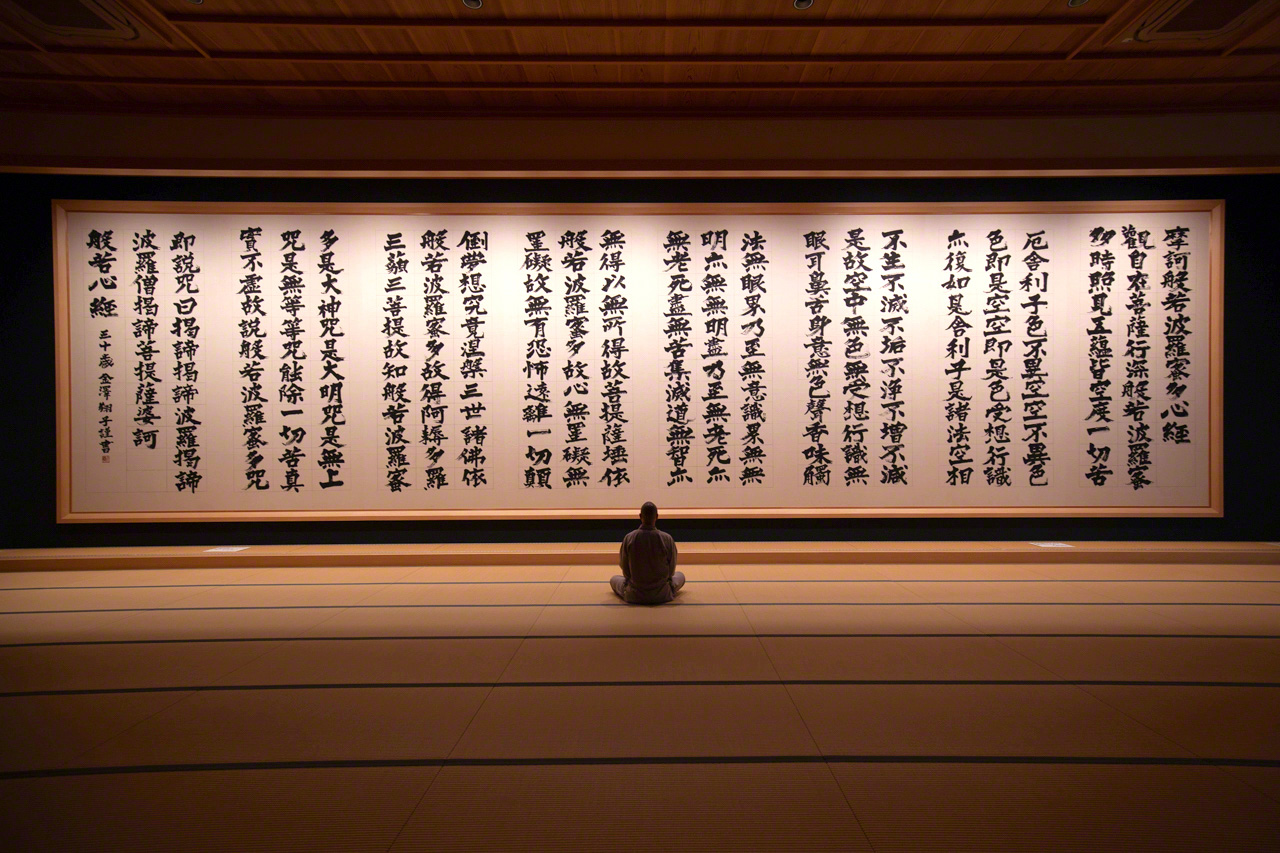 摩訶般若波羅蜜多心經
觀自在菩薩行深般若波羅蜜
多時照見五蘊皆空度一切苦
厄舎利子色不異空空不異色
色即是空空即是色受想行識
亦復如是舎利子是諸法空相
不生不滅不垢不浄不增不減
是故空中無色無受想行識無
眼耳鼻舌身意無色聲香味觸
法無眼界乃至無意識界無無
明亦無無明盡乃至無老死亦
無老死盡無苦集滅道無智亦
無得以無所得故菩提薩埵依
般若波羅蜜多故心無罣礙無
罣礙故無有恐怖遠離一切顛
倒夢想究竟涅槃三世諸佛依
般若波羅蜜多故得阿耨多羅
三藐三菩提故知般若波羅蜜
多是大神咒是大明咒是無上
咒是無等等咒能除一切苦真
實不虚故説般若波羅蜜多咒
即説咒曰揭諦揭諦波羅揭諦
波羅僧揭諦菩提薩婆訶
般若心經 三十歳 金澤翔子謹書